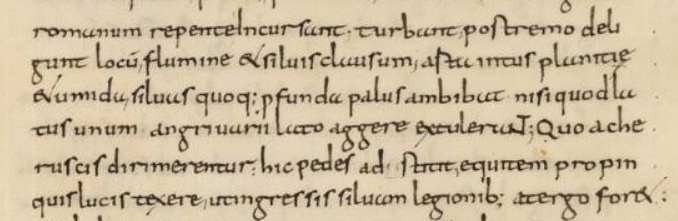 romanum repente Incursant. turbant, postremo deli
gunt locū, flumine & siluis clausum, arta intus planitię
& umida, siluas quoq; pfunda palus ambibat nisi quod la
tus unum angriuarii lato aggere extulerant; Quo a che
ruscis dirimerentur; hic pedes ad stitit, equitem propin
quis lucis texere, ut ingressis siluam legionib; a tergo for&;